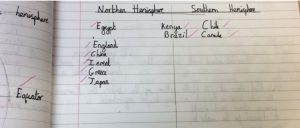 hemisphere
Northern Hemisphere Southern Hemisphere
Egypt Kenya Chile
Brazil Canada
England
China
Israel
Greece
Japan
Equator